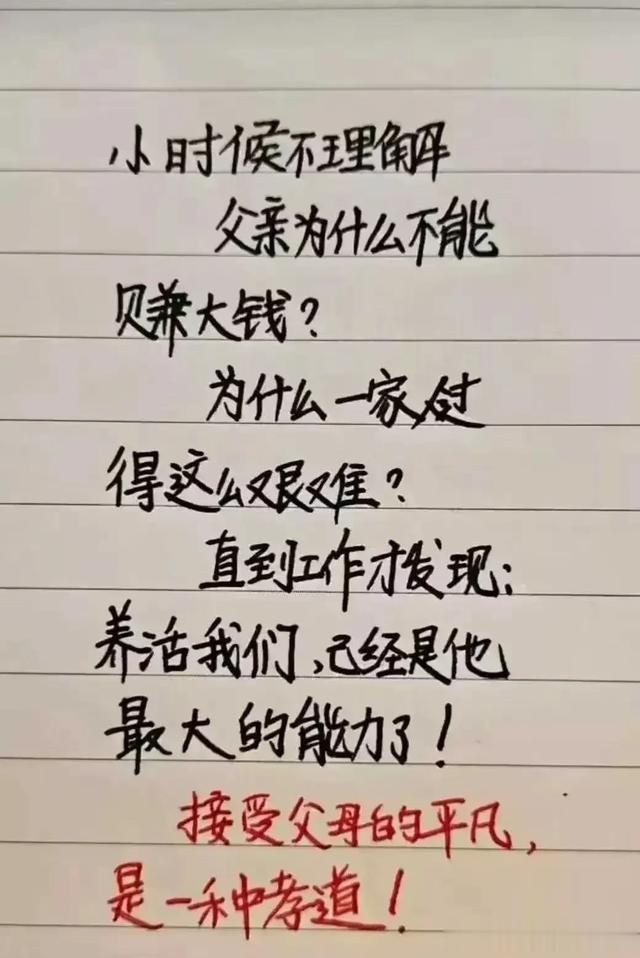 小时候不理解
父亲为什么不能
赚大钱？
为什么一家人过
得这么艰难？
直到工作才发现：
养活我们，已经是他
最大的能力了！
接受父母的平凡，
是一种孝道！